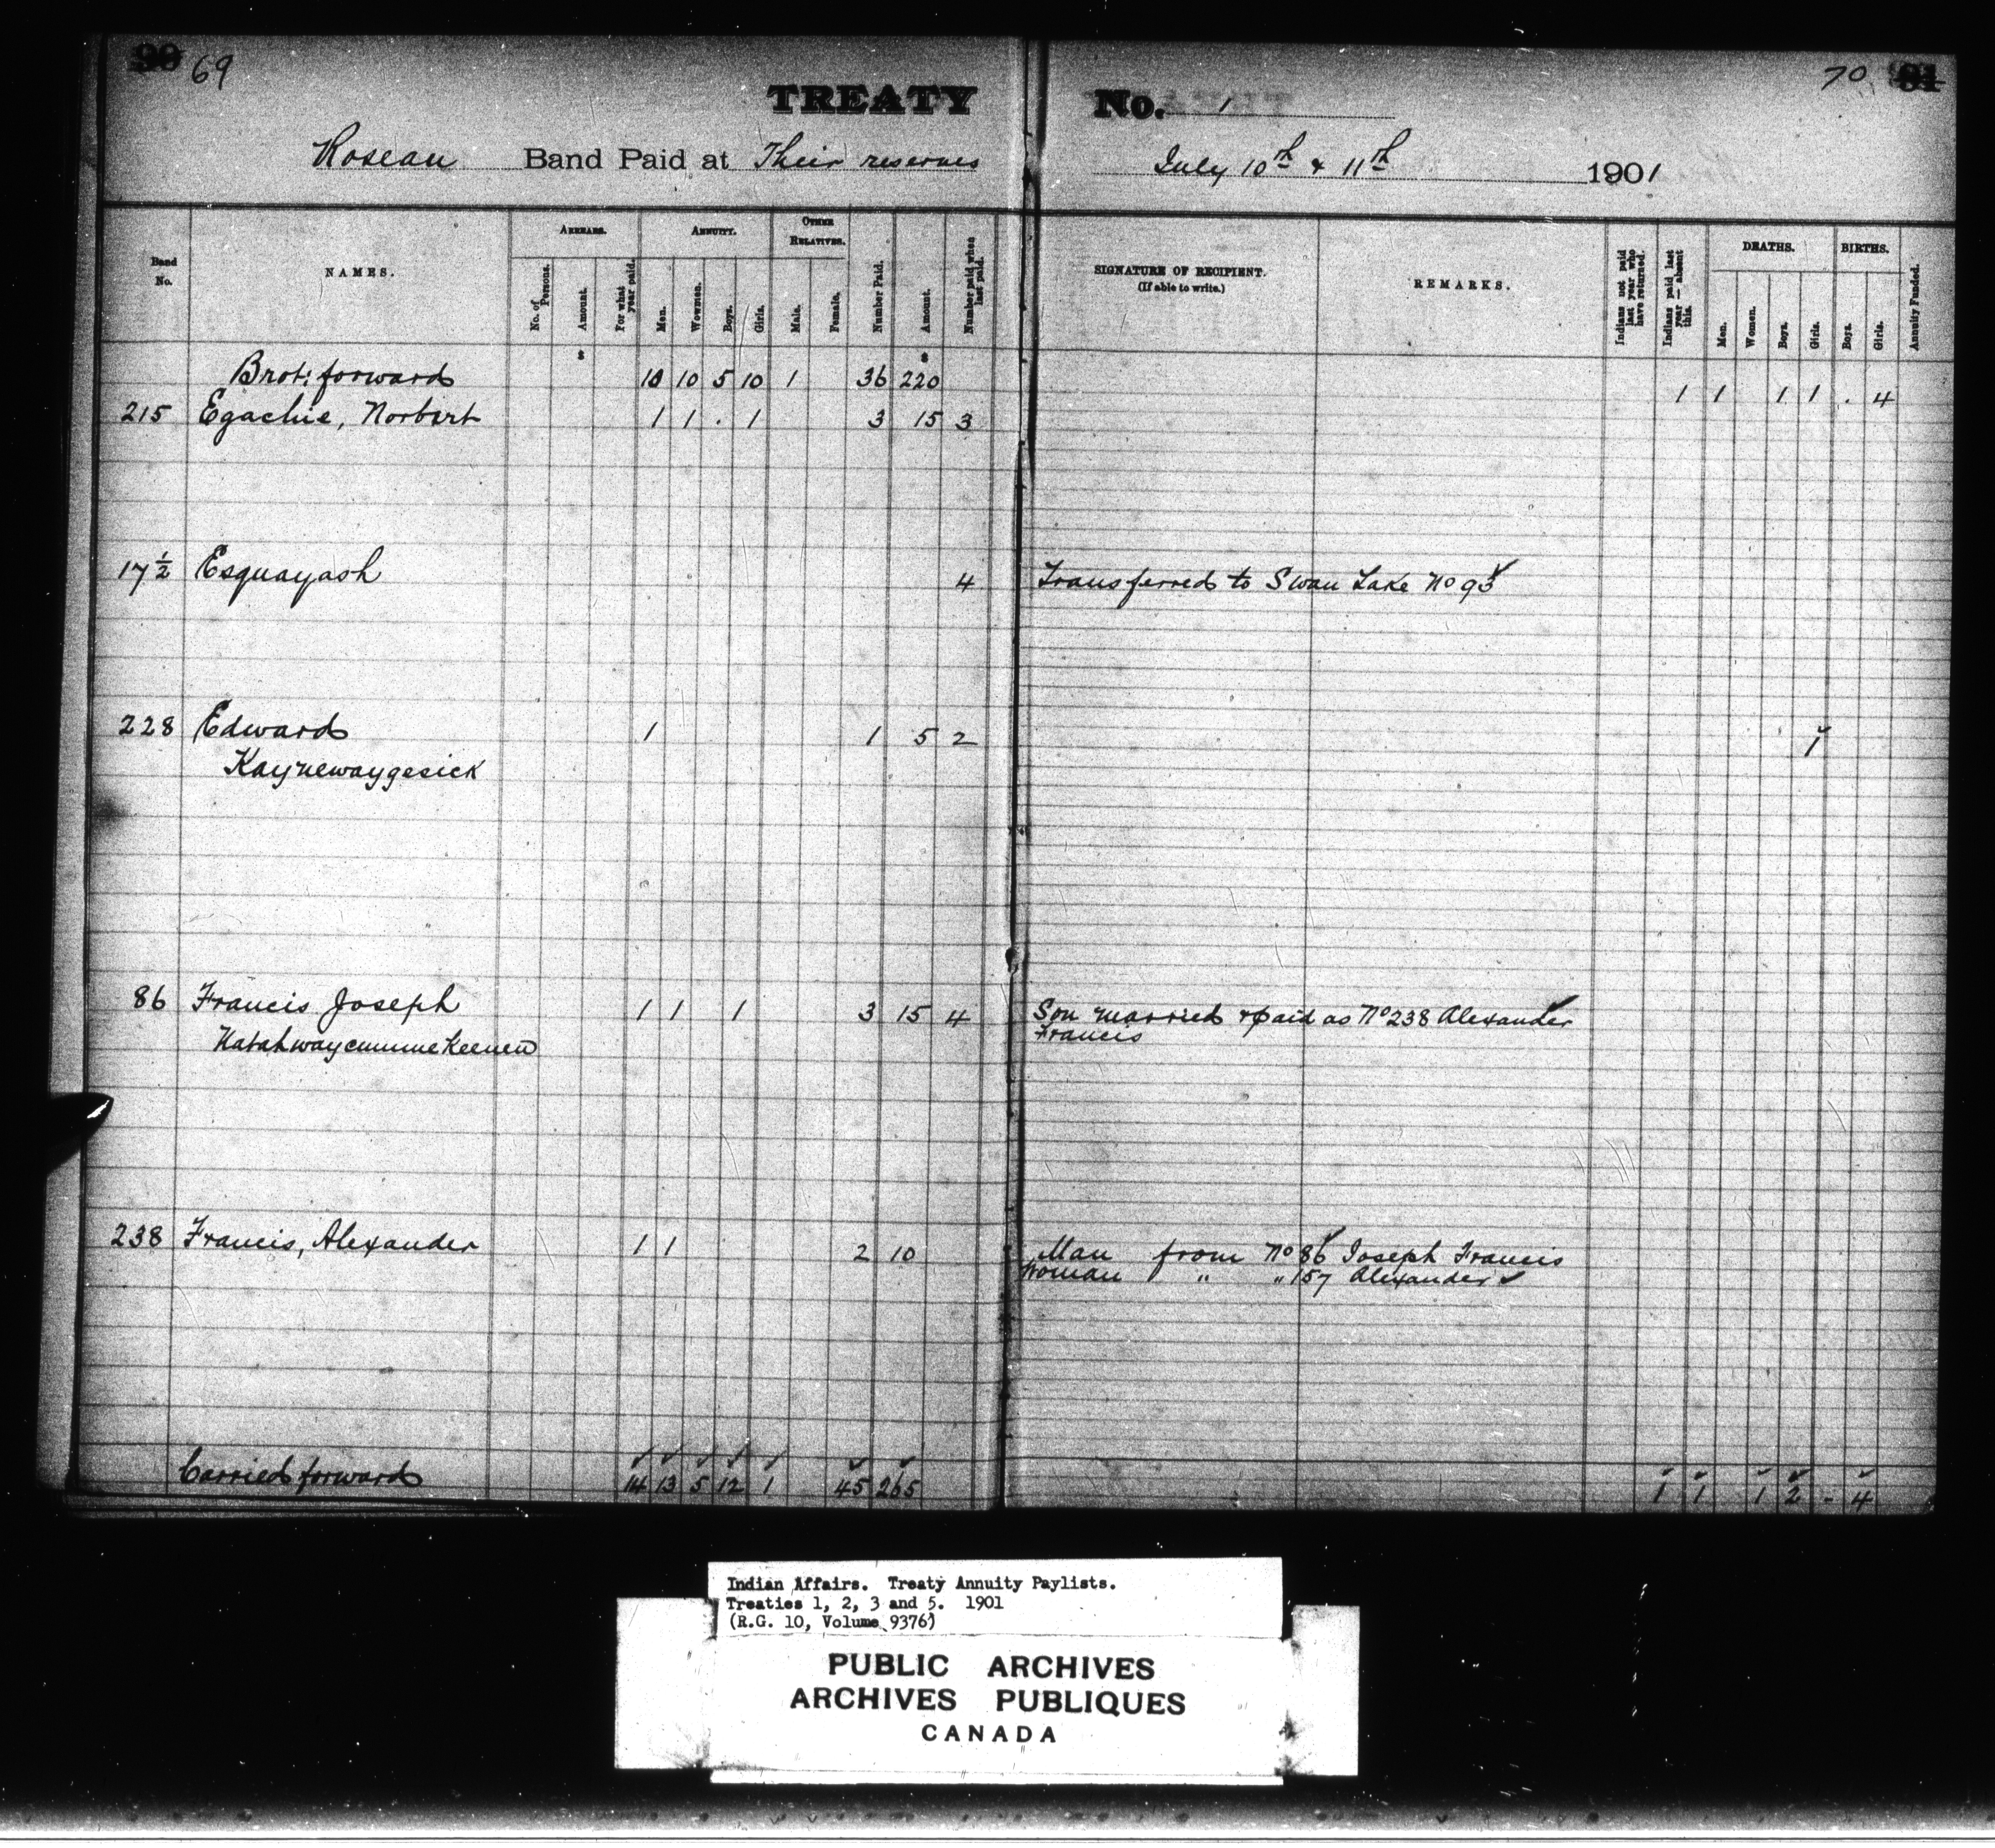 90 69
TREATY No. 1
70 91
Roseau Band Paid at Their reserves July 10th & 11th 1901
Band No.
NAMES.
ARREARS.
No. of Persons.
Amount.
For what year paid.
ANNUITY.
Men.
Wowmen.
Boys.
Girls.
OTHER RELATIVES.
Male.
Female.
Number Paid.
Amount.
Number paid when last paid.
SIGNATURE OF RECIPIENT.
(If able to write.)
REMARKS.
Indians not paid last year who have returned.
Indians paid last year — absent this.
DEATHS.
Men.
Women.
Boys.
Girls.
BIRTHS.
Boys.
Girls.
Annuity Funded.
Brot: forward 10 10 5 10 1 36 220 1 1 1 1 . 4
215 Egachie, Norbert 1 1 . 1 3 15 3
17 ½ Esquayash 4 Transferred to Swan Lake No 93
228 Edward 1 1 5 2 1
Kaynewaygesick
86 Francis Joseph 1 1 1 3 15 4 Son married & paid as No 238 Alexander
Francis
238 Francis, Alexander 1 1 2 10 Man from No 86 Joseph Francis
Woman " " 157 Alexander
Carried forward 14 13 5 12 1 45 265 1 1 1 2 - 4
Indian Affairs. Treaty Annuity Paylists.
Treaties 1, 2, 3 and 5. 1901
(R.G. 10, Volume 9376)
PUBLIC ARCHIVES
ARCHIVES PUBLIQUES
CANADA